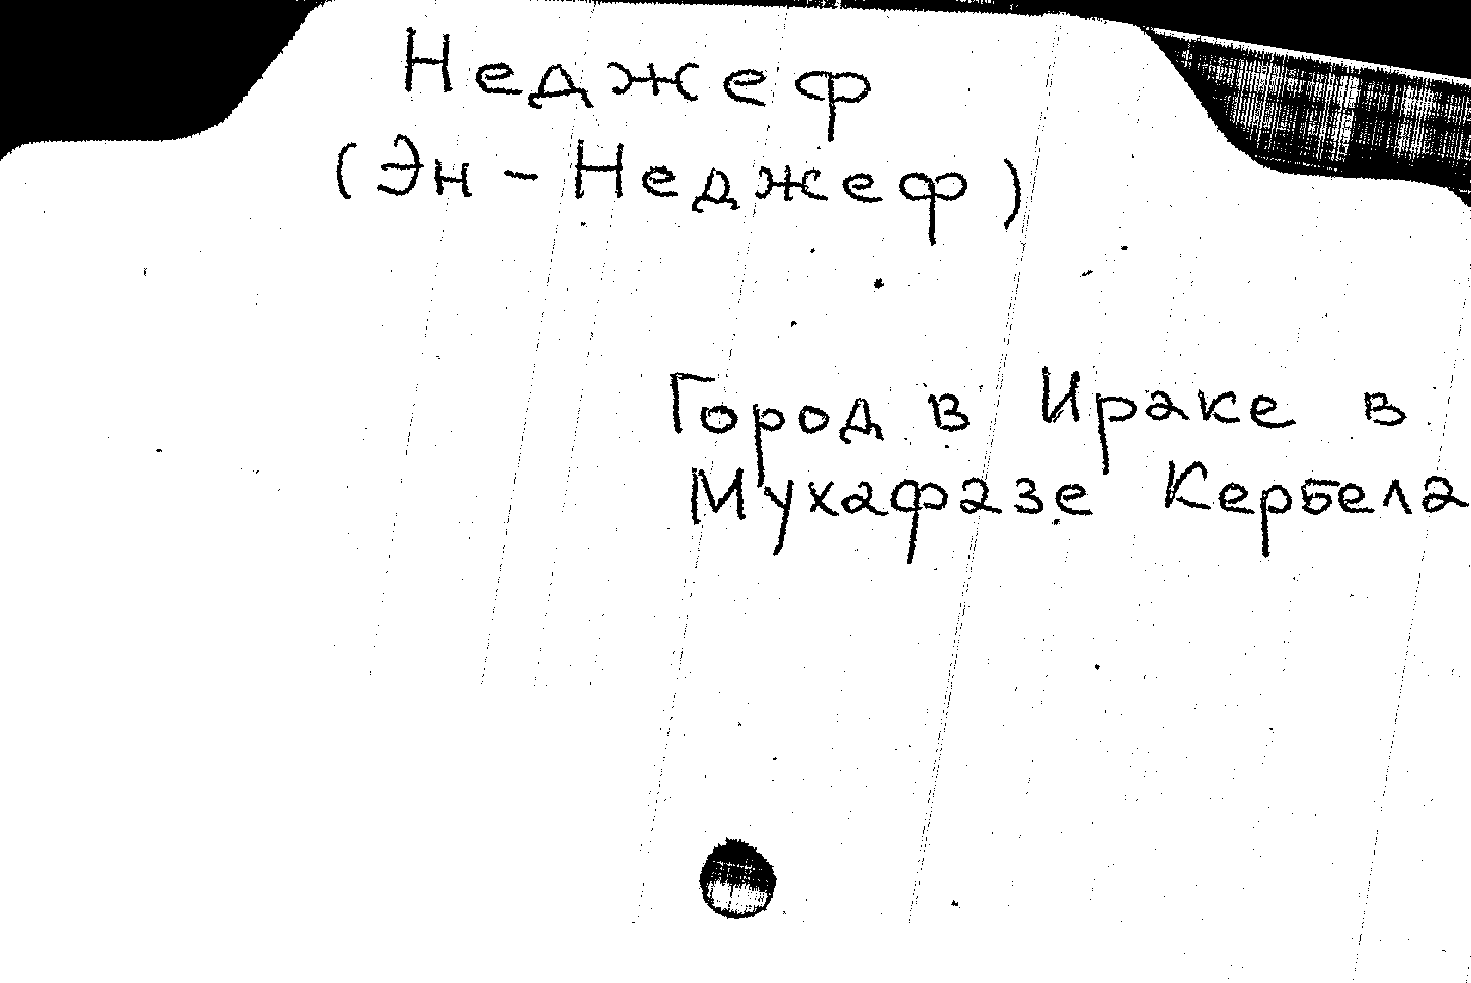 Неджеф
(Эн-Неджеф)
Город в Ираке в
Мухафазе Кербела